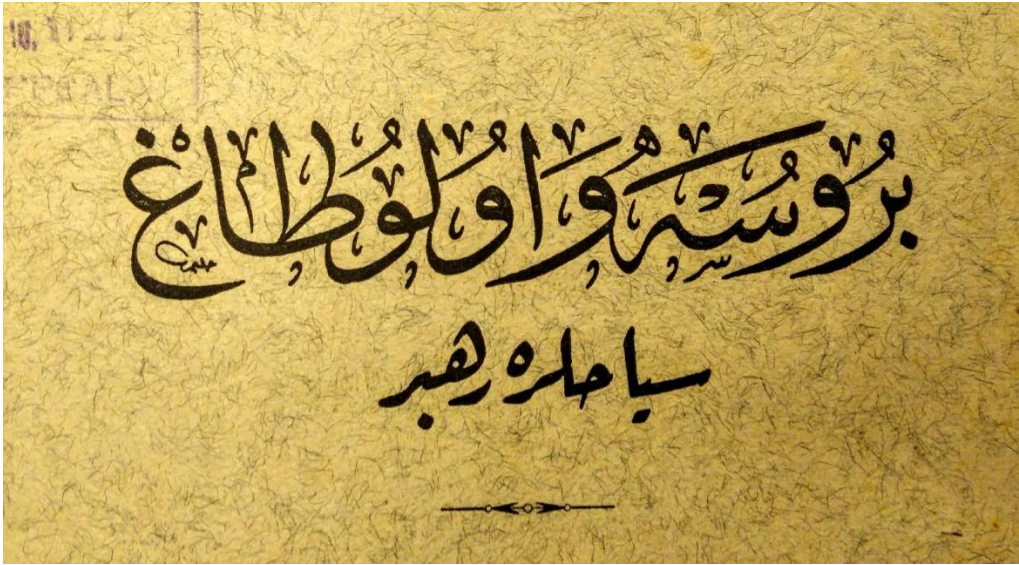 بروسه و اولوطاغ
سياحلره رهبر